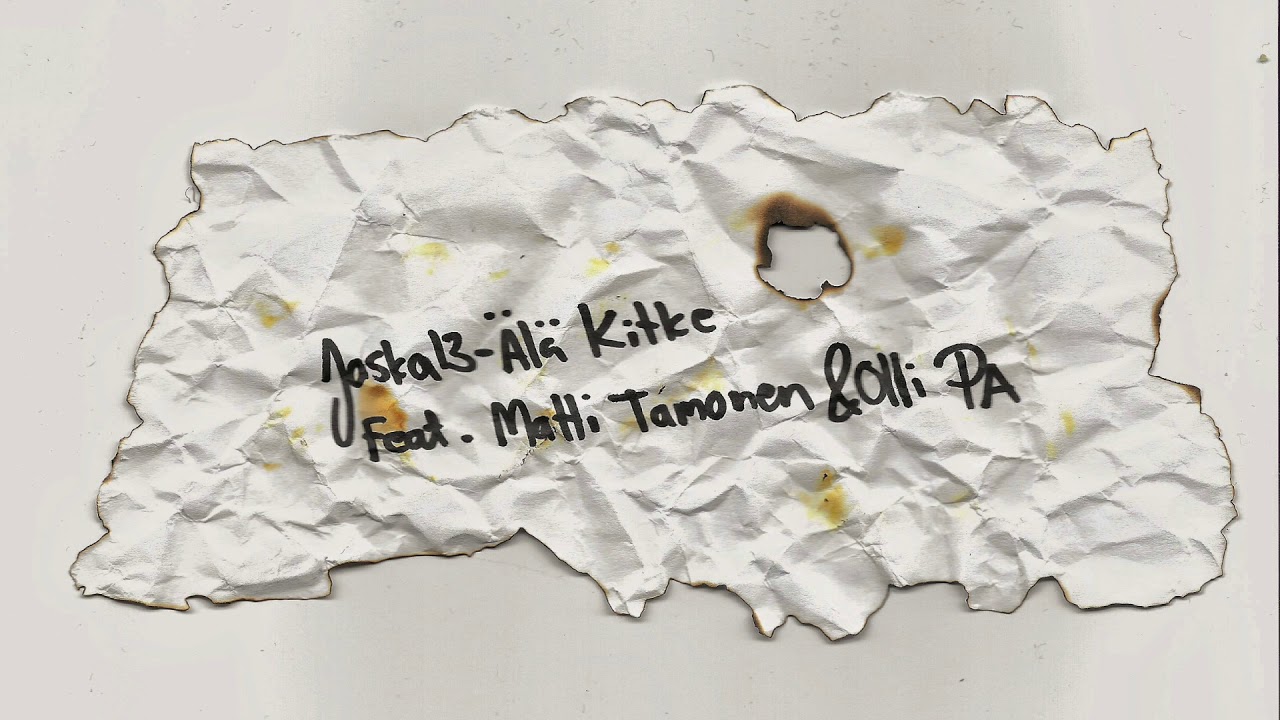 Joska13-Älä Kitke
Feat. Matti Tamonen & Olli PA